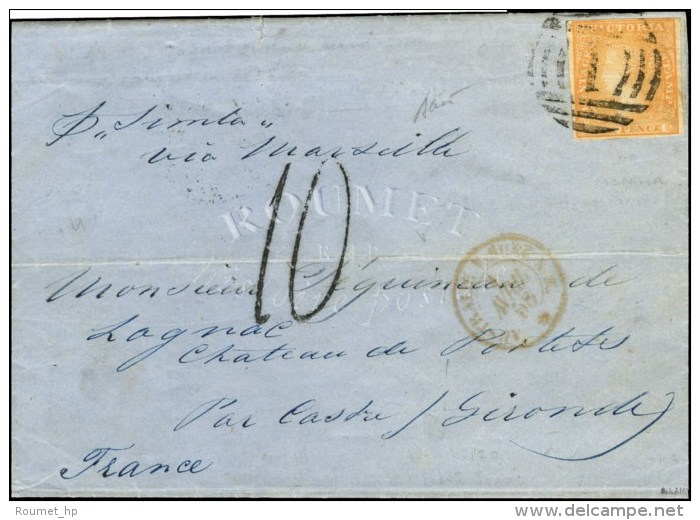 VICTORIA
PENCE
p „Simla"
via Marseille
ROUMET
10
Monsieur Déguineau de
Lognac
Chateau de Portets
Par Castre (Gironde)
France
Roumet_hp
delcampe.net